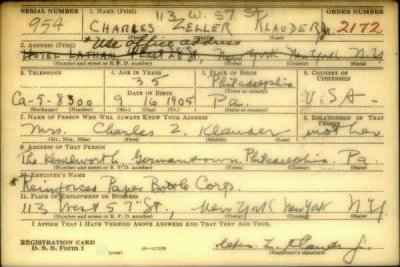 113 W. 57 St.
SERIAL NUMBER 1. NAME (Print) ORDER NUMBER
954 CHARLES ZELLER KLAUDER Jr. 2172
(First) (Middle) (Last)
* Use office address
2. ADDRESS (Print)
HOTEL LATHAM East 28 St., New York New York N.Y.
(Number and street or R. F. D. number) (Town) (County) (State)
3. TELEPHONE 4. AGE IN YEARS 5. PLACE OF BIRTH 6. COUNTRY OF CITIZENSHIP
35 Philadelphia
DATE OF BIRTH (Town or county)
Ca-5-8300 9 16 1905 Pa. U.S.A.
(Exchange) (Number) (Mo.) (Day) (Yr.) (State or country)
7. NAME OF PERSON WHO WILL ALWAYS KNOW YOUR ADDRESS 8. RELATIONSHIP OF THAT PERSON
Mrs. Charles Z. Klauder mother
(Mr., Mrs., Miss) (First) (Middle) (Last)
9. ADDRESS OF THAT PERSON
The Kenilworth, Germantown, Philadelphia, Pa
(Number and street or R. F. D. number) (Town) (County) (State)
10. EMPLOYER'S NAME
* Reinforced Paper Bottle Corp.
11. PLACE OF EMPLOYMENT OR BUSINESS
113 West 57 St., New York New York N.Y.
(Number and street or R. F. D. number) (Town) (County) (State)
I AFFIRM THAT I HAVE VERIFIED ABOVE ANSWERS AND THAT THEY ARE TRUE.
REGISTRATION CARD
D. S. S. Form 1 16-17105 Chas. Z. Klauder Jr.